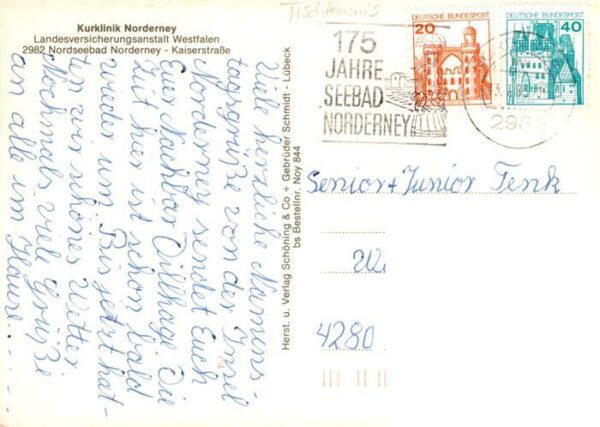 Kurklinik Norderney
Landesversicherungsanstalt Westfalen
2982 Nordseebad Norderney - Kaiserstraße
Tischtennis
175
JAHRE
SEEBAD
NORDERNEY
20
DEUTSCHE BUNDESPOST
40
DEUTSCHE BUNDESPOST
298
Viele herzliche Namens-
tagsgrüße von der Insel
Norderney sendet Euch
Euer Nachbar Dillhage. Die
Zeit hier ist schon bald
wieder um. Bis jetzt hat-
ten wir schönes Wetter
Nochmals viele Grüße
an alle im Hause....
Herst. u. Verlag Schöning & Co + Gebrüder Schmidt - Lübeck
bs Bestellnr. Noy 844
Senior + Junior Tenk
4280